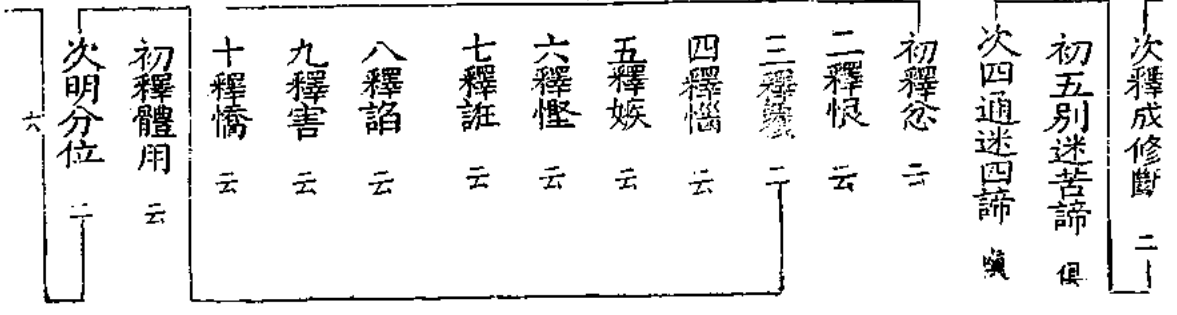 次釋成修斷 二
初五別迷苦諦 俱
次四通迷四諦 嗔
初釋忿 二
二釋恨 云
三釋覆 二
四釋惱 云
五釋嫉 云
六釋慳 云
七釋誑 云
八釋諂 云
九釋害 云
十釋憍 云
初釋體用 云
次明分位 二
六